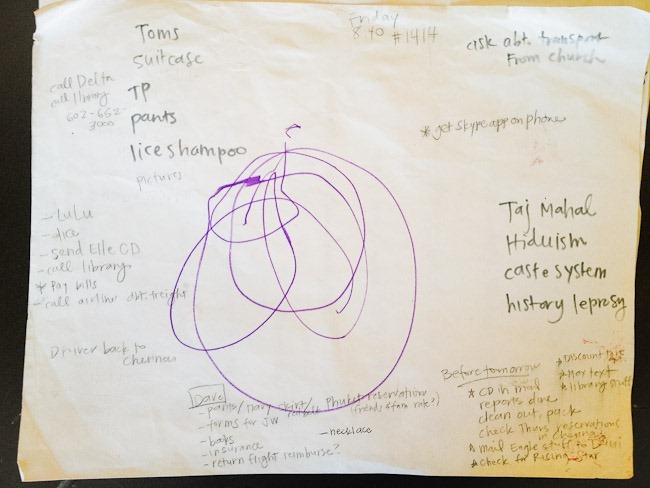 Toms
suitcase
TP
pants
lice shampoo
pictures
Friday
8:40 #1414
ask abt. transport
From church
call Delta
call library
602-652-
3000
* get skype app on phone
- LuLu
- lice
- send Elle CD
- call library
* Pay bills
- call airline abt. freight
Driver back to
Chennai
Taj Mahal
Hiduism
caste system
history leprosy
Dave
- pants/Mary skirt/
- forms for JW
- bags
- insurance
- return flight reimburse?
Phuket reservation
(friend & fam rate?)
- necklace
Before tomorrow
* CD in mail
reports done
clean out, pack
check Thurs reservations
in Chennai
* mail Eagle stuff to
* Check for Rising Star
* Discount
* text
* library stuff